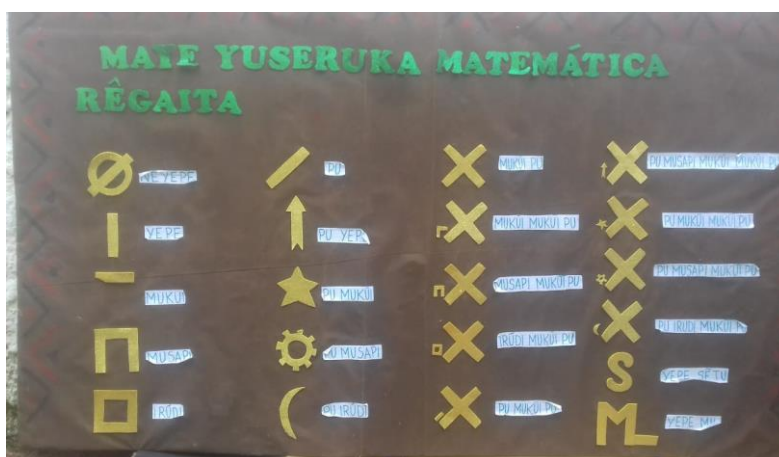 MATE YUSERUKA MATEMÁTICA
RÊGAITA
NEYEPE
YEPE
MUKUI
MUSAPI
IRŪDI
PU
PU YEPE
PU MUKUI
PU MUSAPI
PU IRŪDI
MUKUI PU
MUKUI MUKUI PU
MUSAPI MUKUI PU
IRŪDI MUKUI PU
PU MUKUI PU
PU MUSAPI MUKUI MUKUI PU
PU MUKUI MUKUI PU
PU MUSAPI MUKUI PU
PU IRUDI MUKUI
S
YEPE SĒTU
M
YEPE